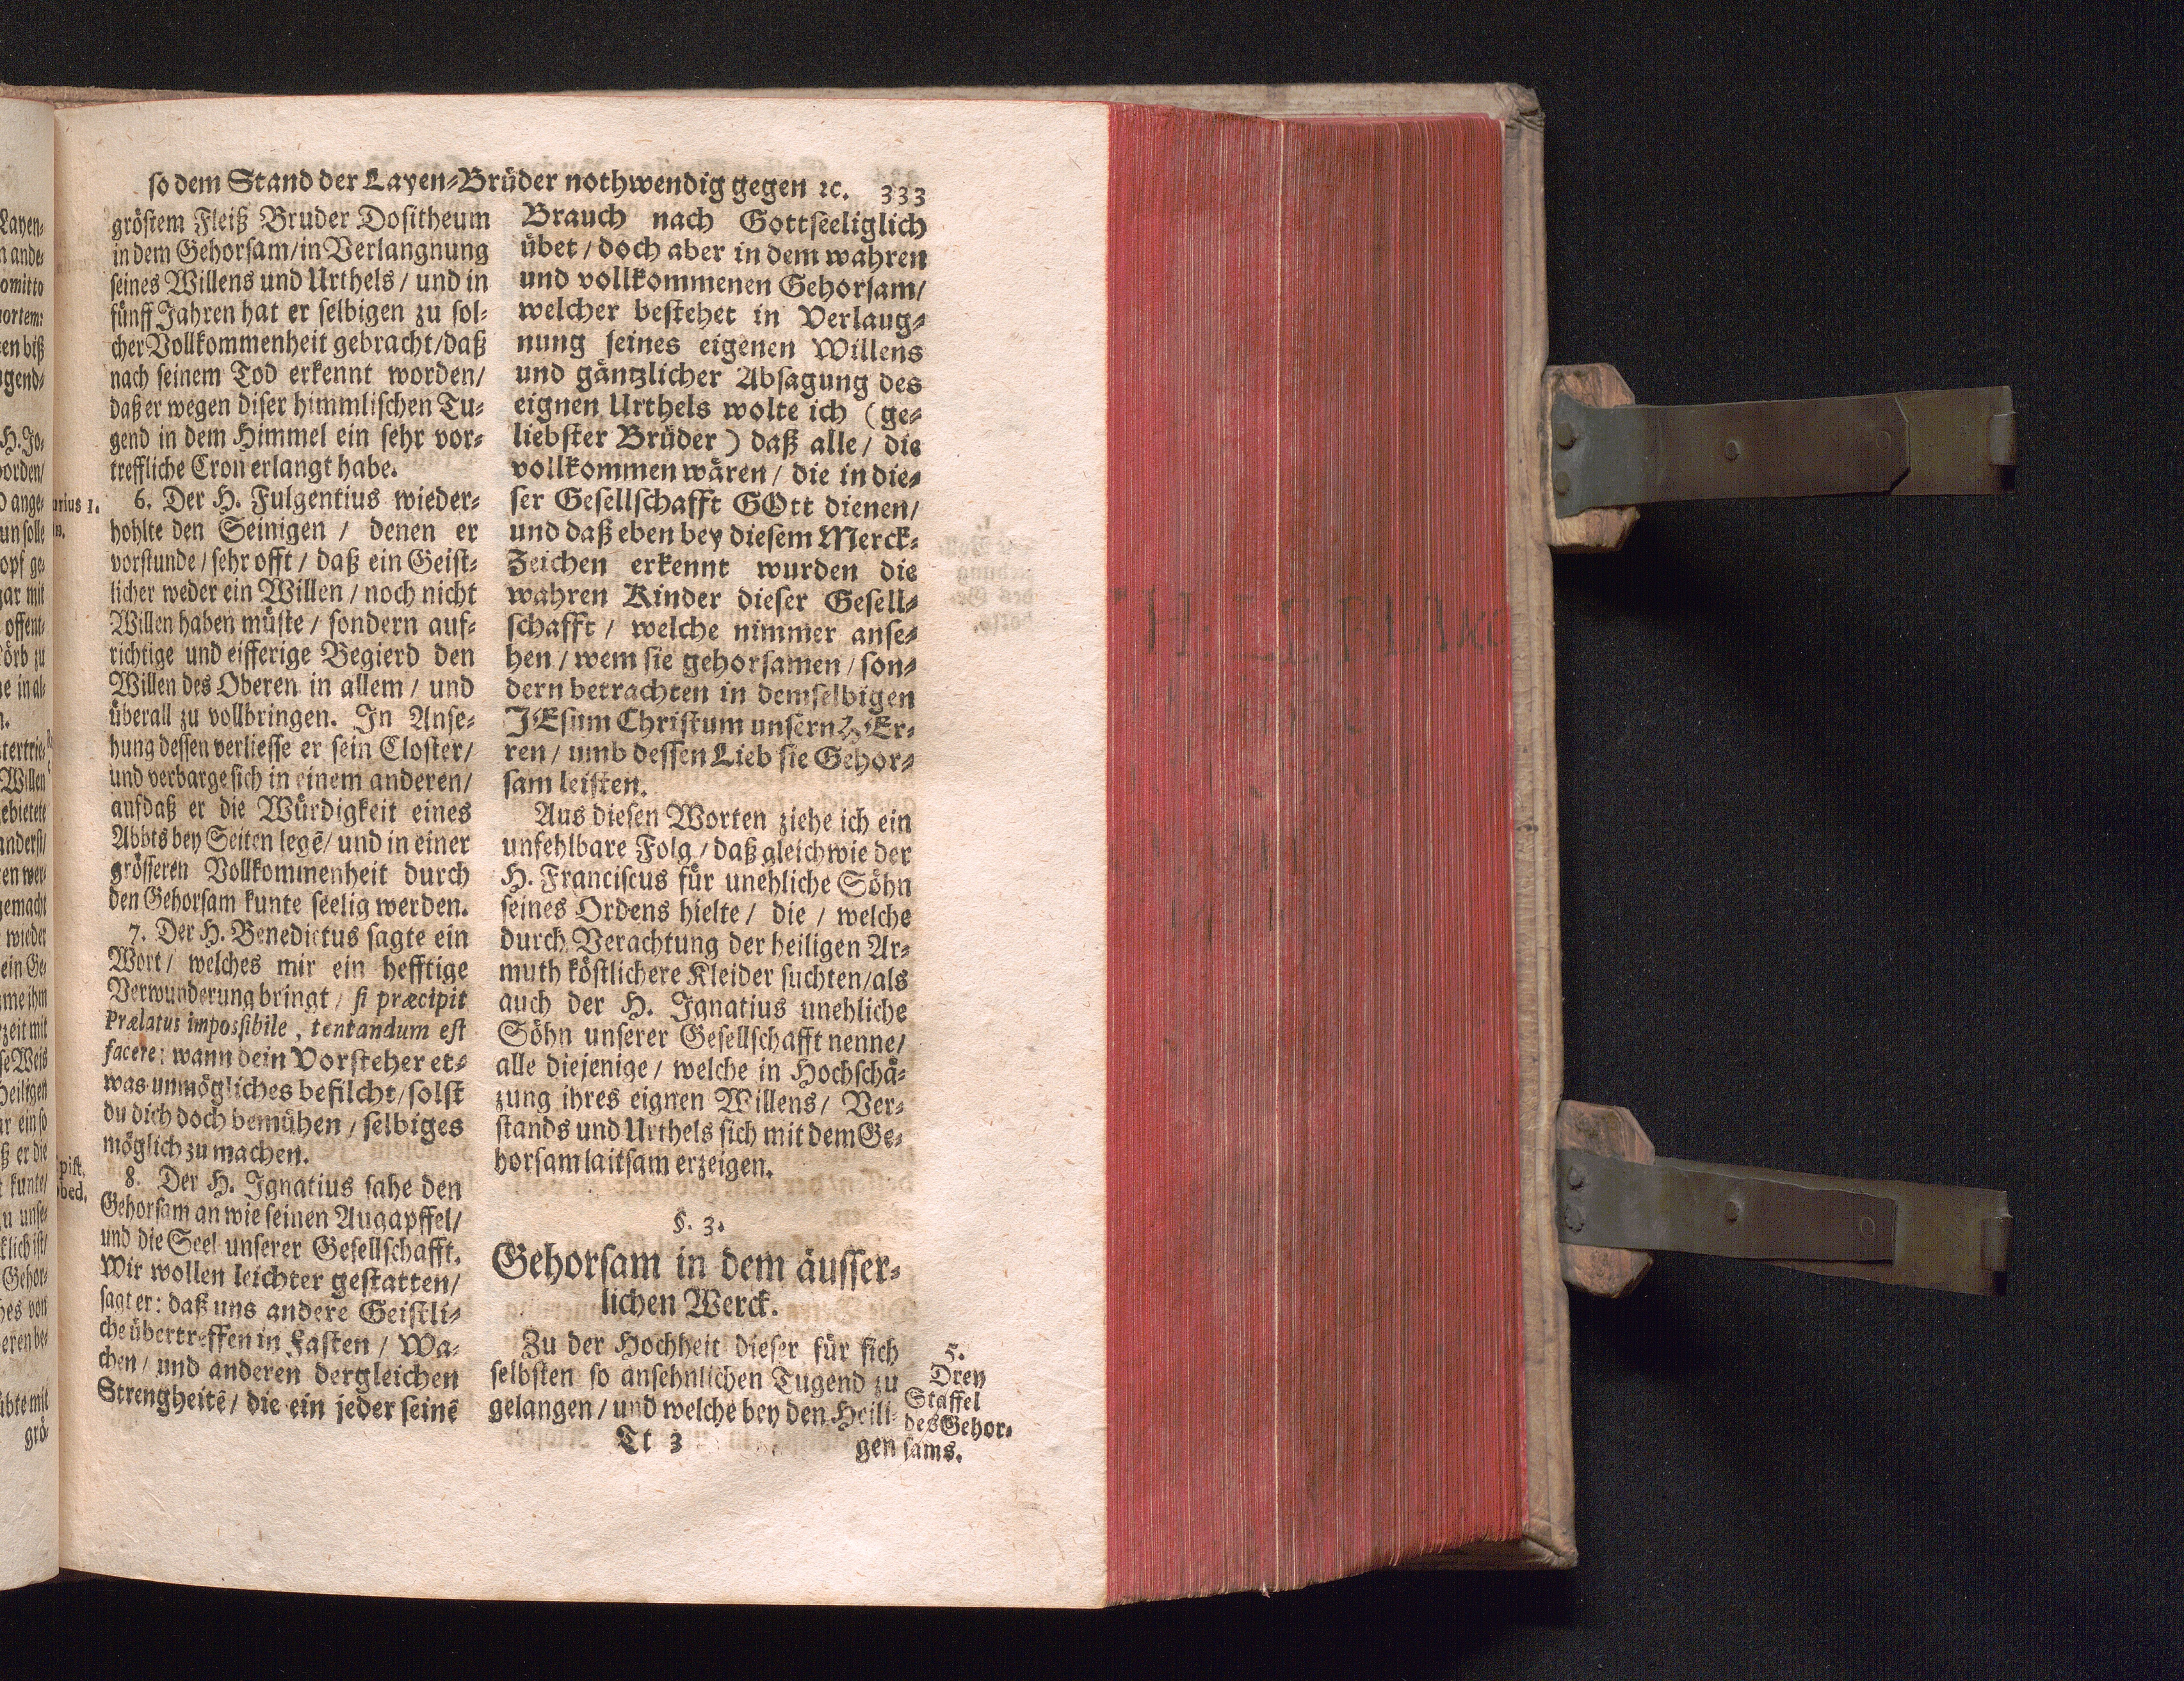 so dem Stand der Layen-Brüder nothwendig gegen ꝛc. 333
gröstem Fleiß Bruder Dositheum
in dem Gehorsam/in Verlangnung
seines Willens und Urthels / und in
fünff Jahren hat er selbigen zu sol-
cher Vollkommenheit gebracht/daß
nach seinem Tod erkennt worden/
daß er wegen diser himmlischen Tu-
gend in dem Himmel ein sehr vor-
treffliche Cron erlangt habe.
6. Der H. Fulgentius wieder-
hohlte den Seinigen / denen er
vorstunde / sehr offt / daß ein Geist-
licher weder ein Willen / noch nicht
Willen haben müste / sondern auf-
richtige und eifferige Begierd den
Willen des Oberen in allem / und
überall zu vollbringen. In Anse-
hung dessen verliesse er sein Closter/
und verbarge sich in einem anderen/
aufdaß er die Würdigkeit eines
Abbts bey Seiten legē/ und in einer
grösseren Vollkommenheit durch
den Gehorsam kunte seelig werden.
7. Der H. Benedictus sagte ein
Wort / welches mir ein hefftige
Verwunderung bringt / si præcipit
Prælatus impossibile, tentandum est
facere: wann dein Vorsteher et-
was unmögliches befilcht/solst
du dich doch bemühen / selbiges
möglich zu machen.
8. Der H. Ignatius sahe den
Gehorsam an wie seinen Augapffel/
und die Seel unserer Gesellschafft.
Wir wollen leichter gestatten/
sagt er: daß uns andere Geistli-
che übertreffen in Fasten / Wa-
chen / und anderen dergleichen
Strengheitē / die ein jeder seinē
Brauch nach Gottseeliglich
übet / doch aber in dem wahren
und vollkommenen Gehorsam/
welcher bestehet in Verlaug-
nung seines eigenen Willens
und gäntzlicher Absagung des
eignen Urthels wolte ich (ge-
liebster Brüder) daß alle / die
vollkommen wären / die in die-
ser Gesellschafft GOtt dienen/
und daß eben bey diesem Merck-
Zeichen erkennt wurden die
wahren Kinder dieser Gesell-
schafft / welche nimmer anse-
hen / wem sie gehorsamen / son-
dern betrachten in demselbigen
JEsum Christum unsern HEr-
ren / umb dessen Lieb sie Gehor-
sam leisten.
Aus diesen Worten ziehe ich ein
unfehlbare Folg / daß gleichwie der
H. Franciscus für unehliche Söhn
seines Ordens hielte / die / welche
durch Verachtung der heiligen Ar-
muth köstlichere Kleider suchten/als
auch der H. Ignatius unehliche
Söhn unserer Gesellschafft nenne/
alle diejenige / welche in Hochschä-
zung ihres eignen Willens / Ver-
stands und Urthels sich mit dem Ge-
horsam laitsam erzeigen.
§. 3.
Gehorsam in dem äusser-
lichen Werck.
Zu der Hochheit dieser für sich
selbsten so ansehnlichen Tugend zu
gelangen / und welche bey den Heili-
Tt 3 gen
5.
Drey
Staffel
des Gehor-
sams.